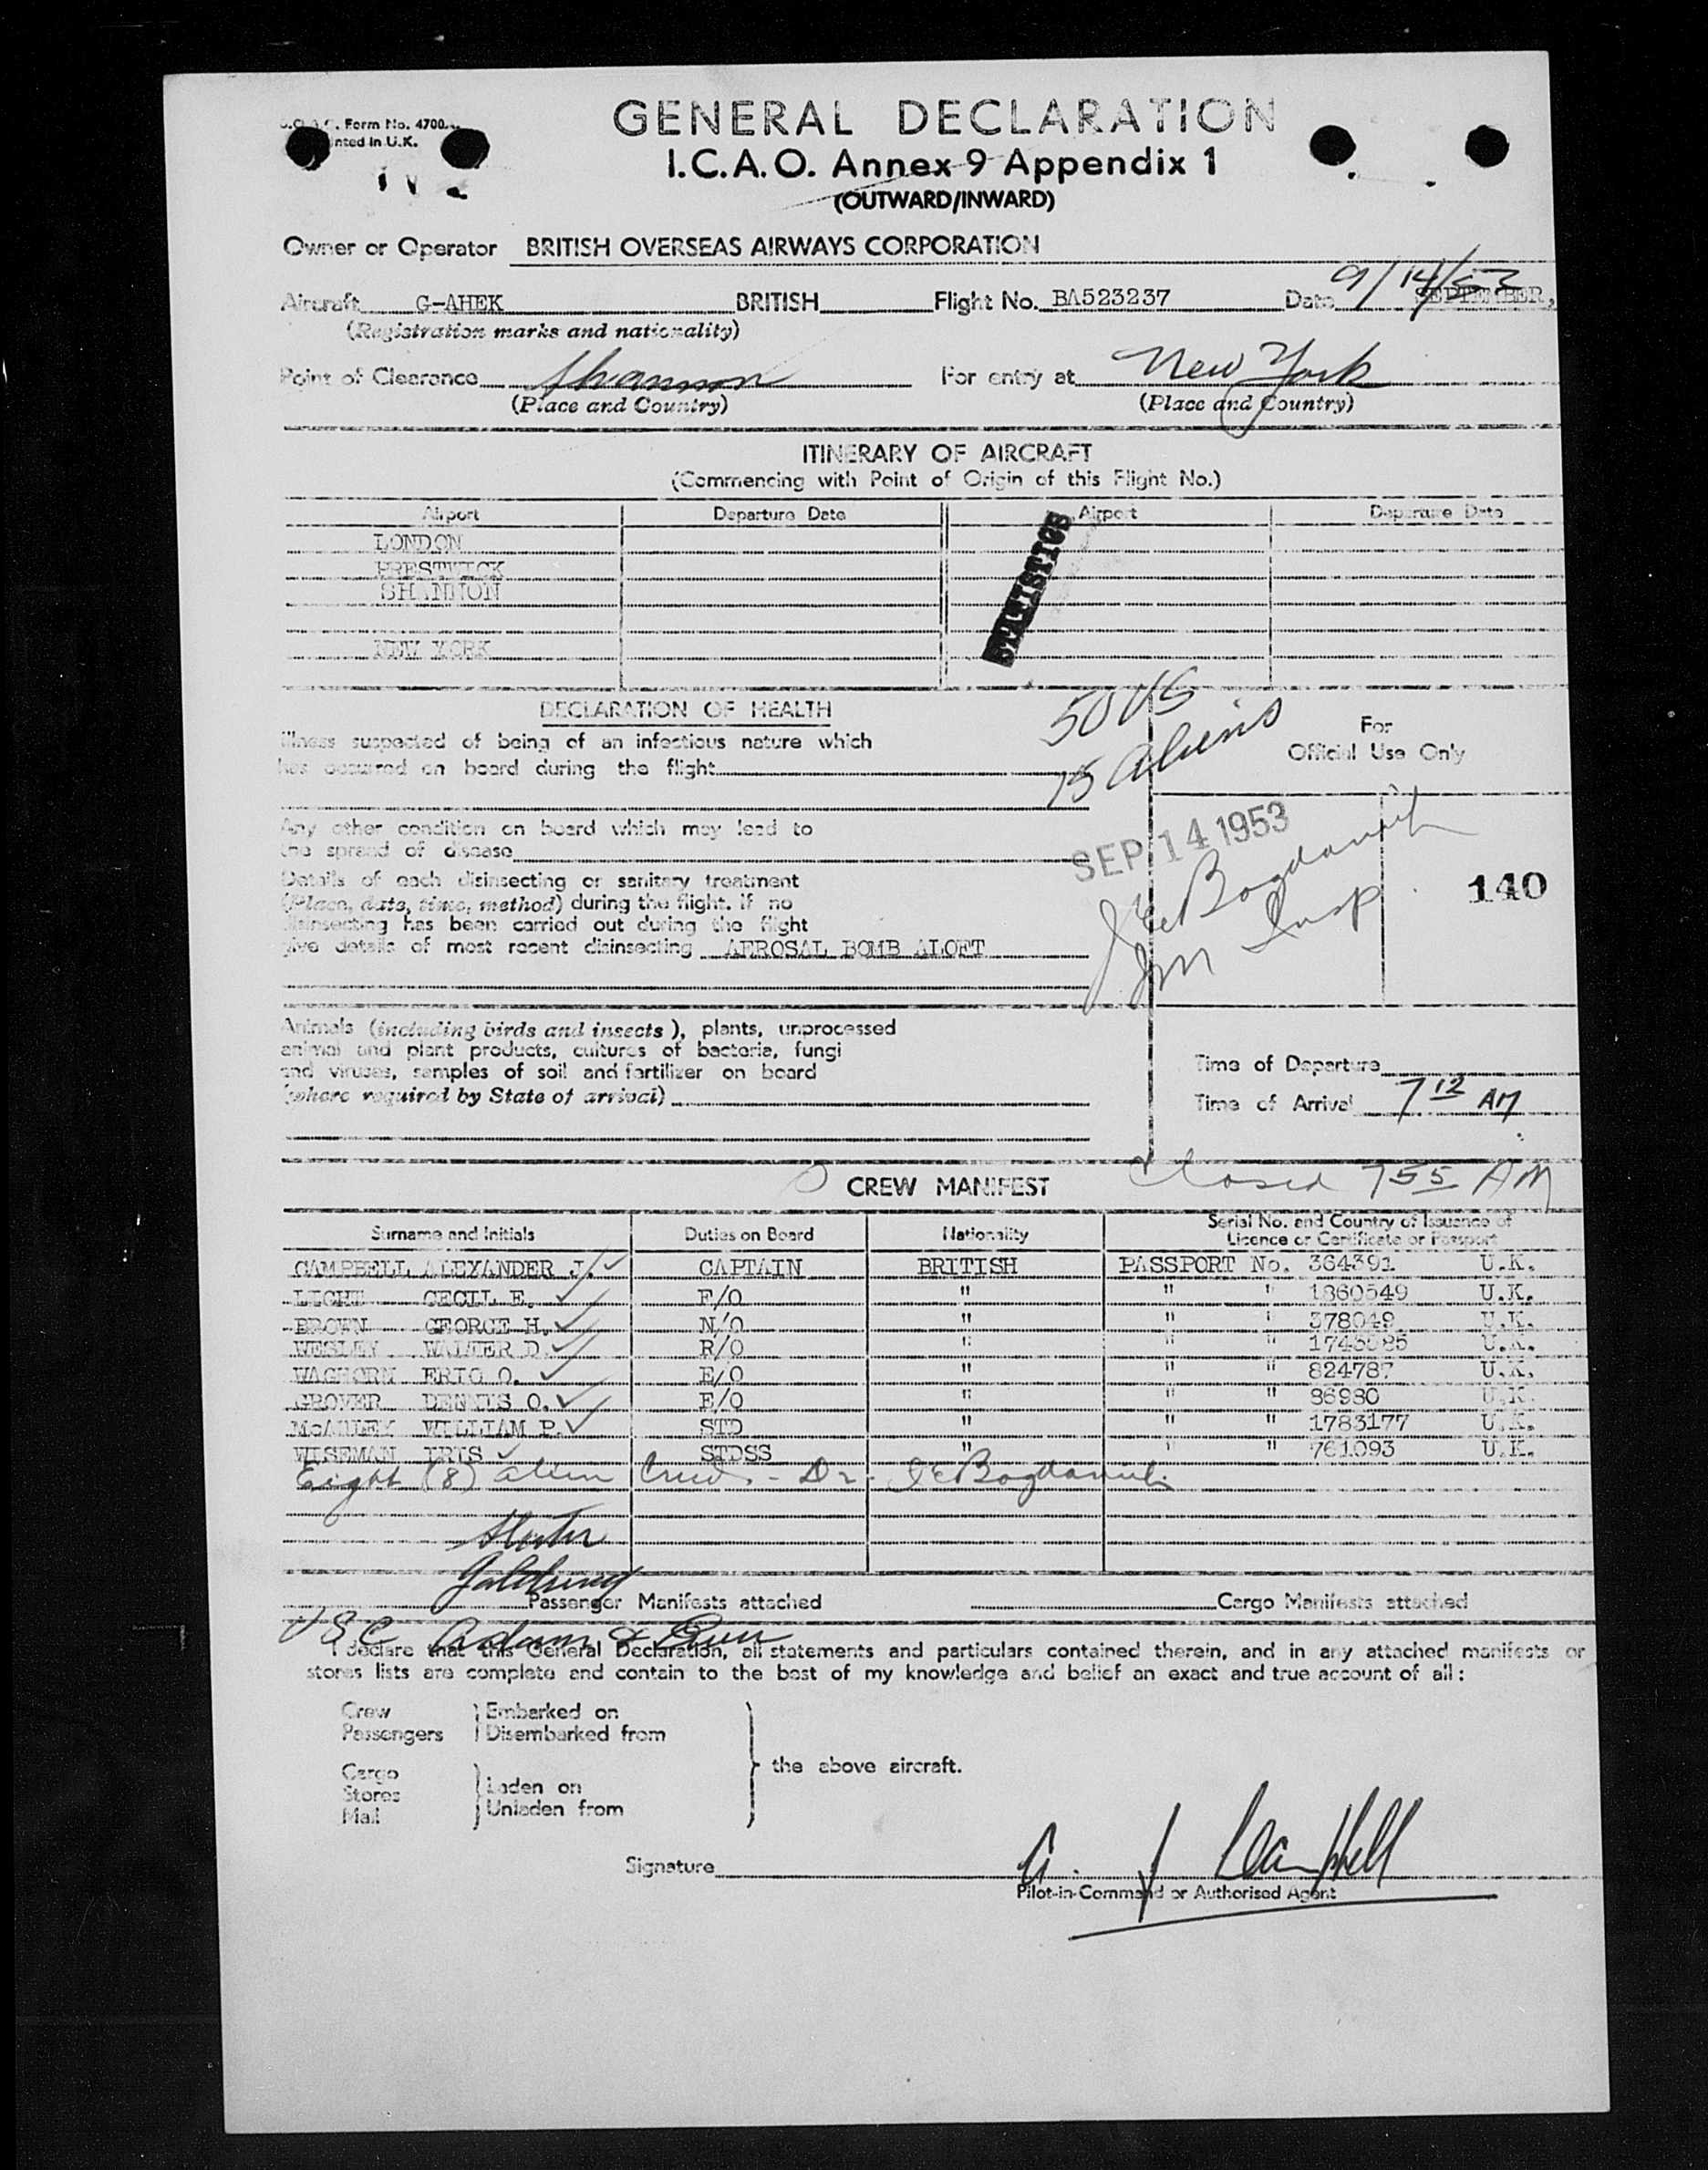 Form No. 4700
GENERAL DECLARATION
nted in U.K.
I.C.A.O. Annex 9 Appendix 1
(OUTWARD/INWARD)
Owner or Operator BRITISH OVERSEAS AIRWAYS CORPORATION
Aircraft G-AHEK BRITISH Flight No. BA523237 Date 9/14/53 SEPTEMBER,
(Registration marks and nationality)
Point of Clearance Shannon For entry at New York
(Place and Country) (Place and Country)
ITINERARY OF AIRCRAFT
(Commencing with Point of Origin of this Flight No.)
Airport Departure Date Airport Departure Date
LONDON
PRESTWICK
SHANNON
NEW YORK
STATISTICS
50 US
15 Aliens
DECLARATION OF HEALTH
For
Official Use Only
Illness suspected of being of an infectious nature which
has occurred on board during the flight
Any other condition on board which may lead to
the spread of disease
SEP 14 1953
Details of each disinsecting or sanitary treatment
(Place, date, time, method) during the flight. If no
disinsecting has been carried out during the flight
give details of most recent disinsecting AEROSAL BOMB ALOFT
J E Bogdanich
Im Insp
140
Animals (including birds and insects), plants, unprocessed
animal and plant products, cultures of bacteria, fungi
and viruses, samples of soil and fertilizer on board
(where required by State of arrival)
Time of Departure
Time of Arrival 7 12 AM
Closed 7 55 AM
CREW MANIFEST
Surname and Initials Duties on Board Nationality Serial No. and Country of Issuance of
Licence or Certificate or Passport
CAMPBELL ALEXANDER J. CAPTAIN BRITISH PASSPORT No. 364391 U.K.
LIGHT CECIL E. F/O " " " 1860549 U.K.
BROWN GEORGE H. N/O " " " 378049 U.K.
WESLEY WALTER D. R/O " " " U.K.
WAGHORN ERIC O. E/O " " " 824787 U.K.
GROVER DENNIS O. E/O " " " 86980 U.K.
WILLIAM P. STD " " " 1783177 U.K.
WISEMAN IRIS STDSS " " " 761093 U.K.
Eight (8) alien Crew. - J E Bogdanich
Goldring
Passenger Manifests attached Cargo Manifests attached
USC Adam &
I declare that this General Declaration, all statements and particulars contained therein, and in any attached manifests or
stores lists are complete and contain to the best of my knowledge and belief an exact and true account of all:
Crew Embarked on
Passengers Disembarked from
the above aircraft.
Cargo
Stores Laden on
Mail Unladen from
Signature A. J Campbell
Pilot-in-Command or Authorised Agent